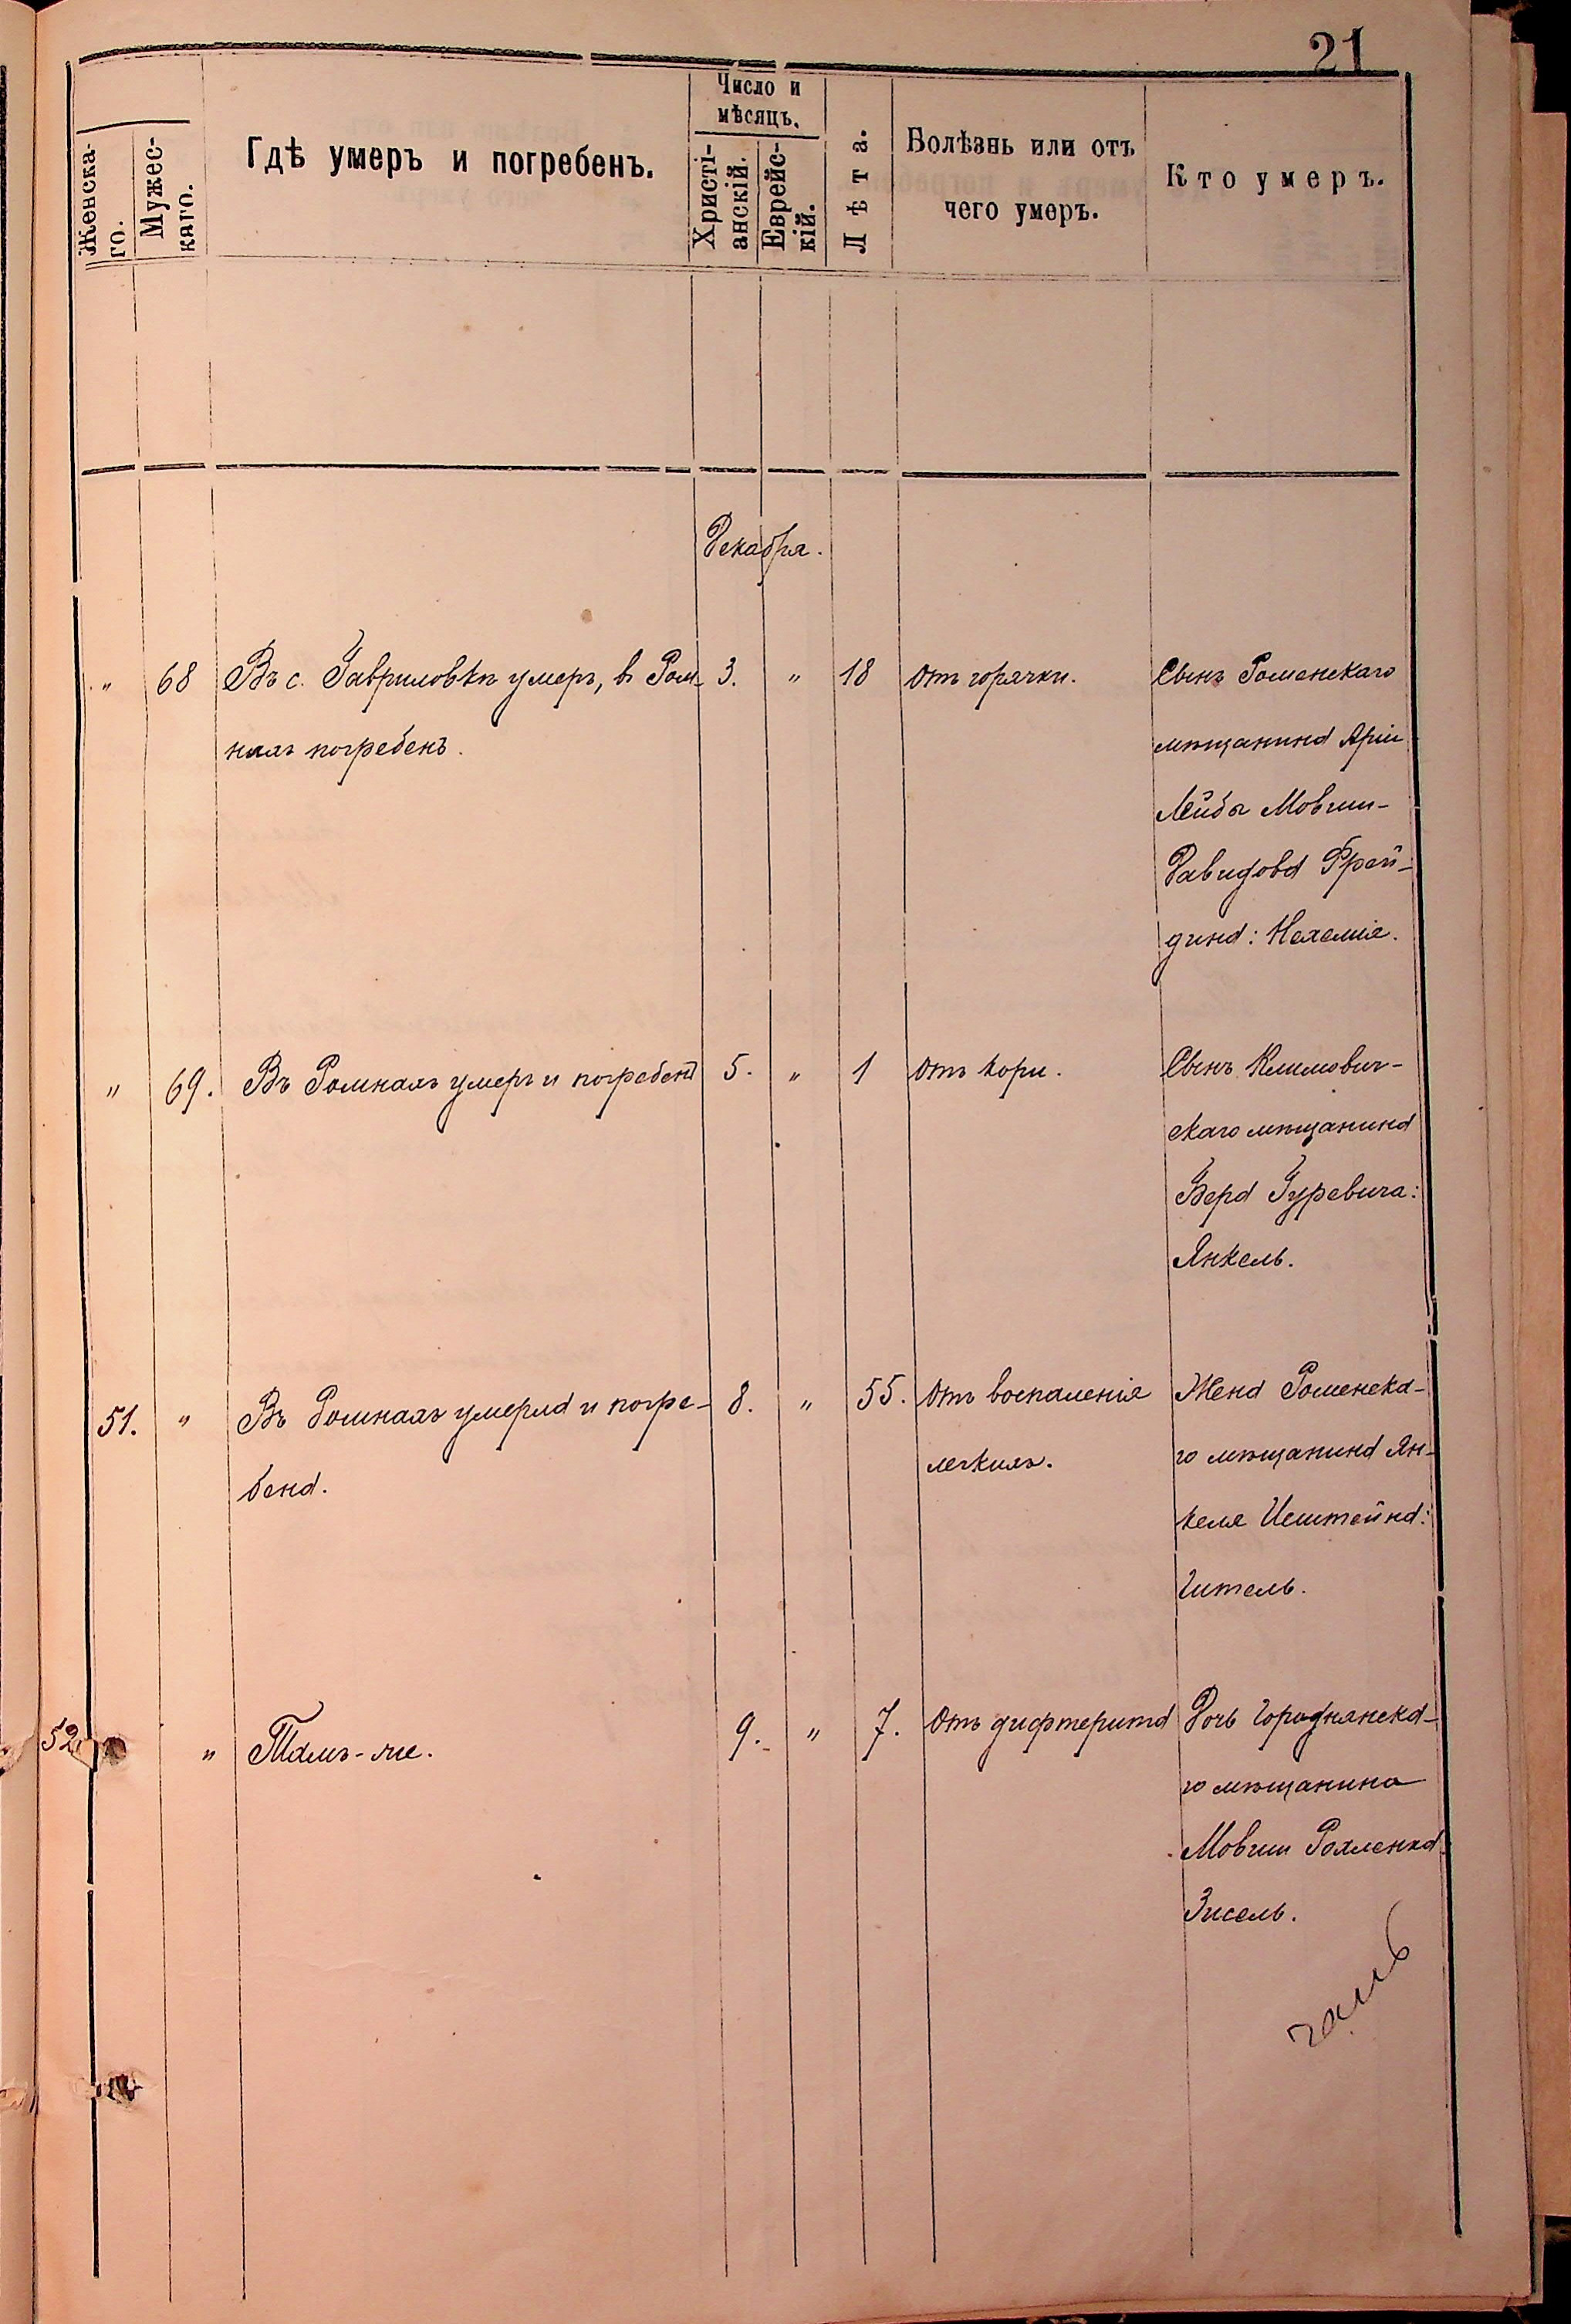 21
Женска-
го.
Мужес-
каго.
Гдѣ умеръ и погребенъ.
Число и
мѣсяцъ.
Христі-
анскій.
Еврейс-
кій.
Лѣта.
Болѣзнь или отъ
чего умеръ.
Кто умеръ.
Декабря.
" 68 Въ с. Гавриловкѣ умеръ, въ Ром- 3. " 18 Отъ горячки. Сынъ Роменскаго
нахъ погребенъ. мѣщанина Аріи
Лейба Мовши-
Давидова Фрей-
дина: Нехемія.
" 69. Въ Ромнахъ умеръ и погребенъ 5. " 1 Отъ кори. Сынъ Климович-
скаго мѣщанина
Бера Гуревича:
Янкель.
51. " Въ Ромнахъ умерла и погре- 8. " 55. Отъ воспаленія Жена Роменска-
бена. легкихъ. го мѣщанина Ян-
келя
Гитель.
52. " Тамъ-же. 9. " 7. Отъ дифтерита Дочь Городнянска-
го мѣщанина
Мовши Рохленка
Зисель.